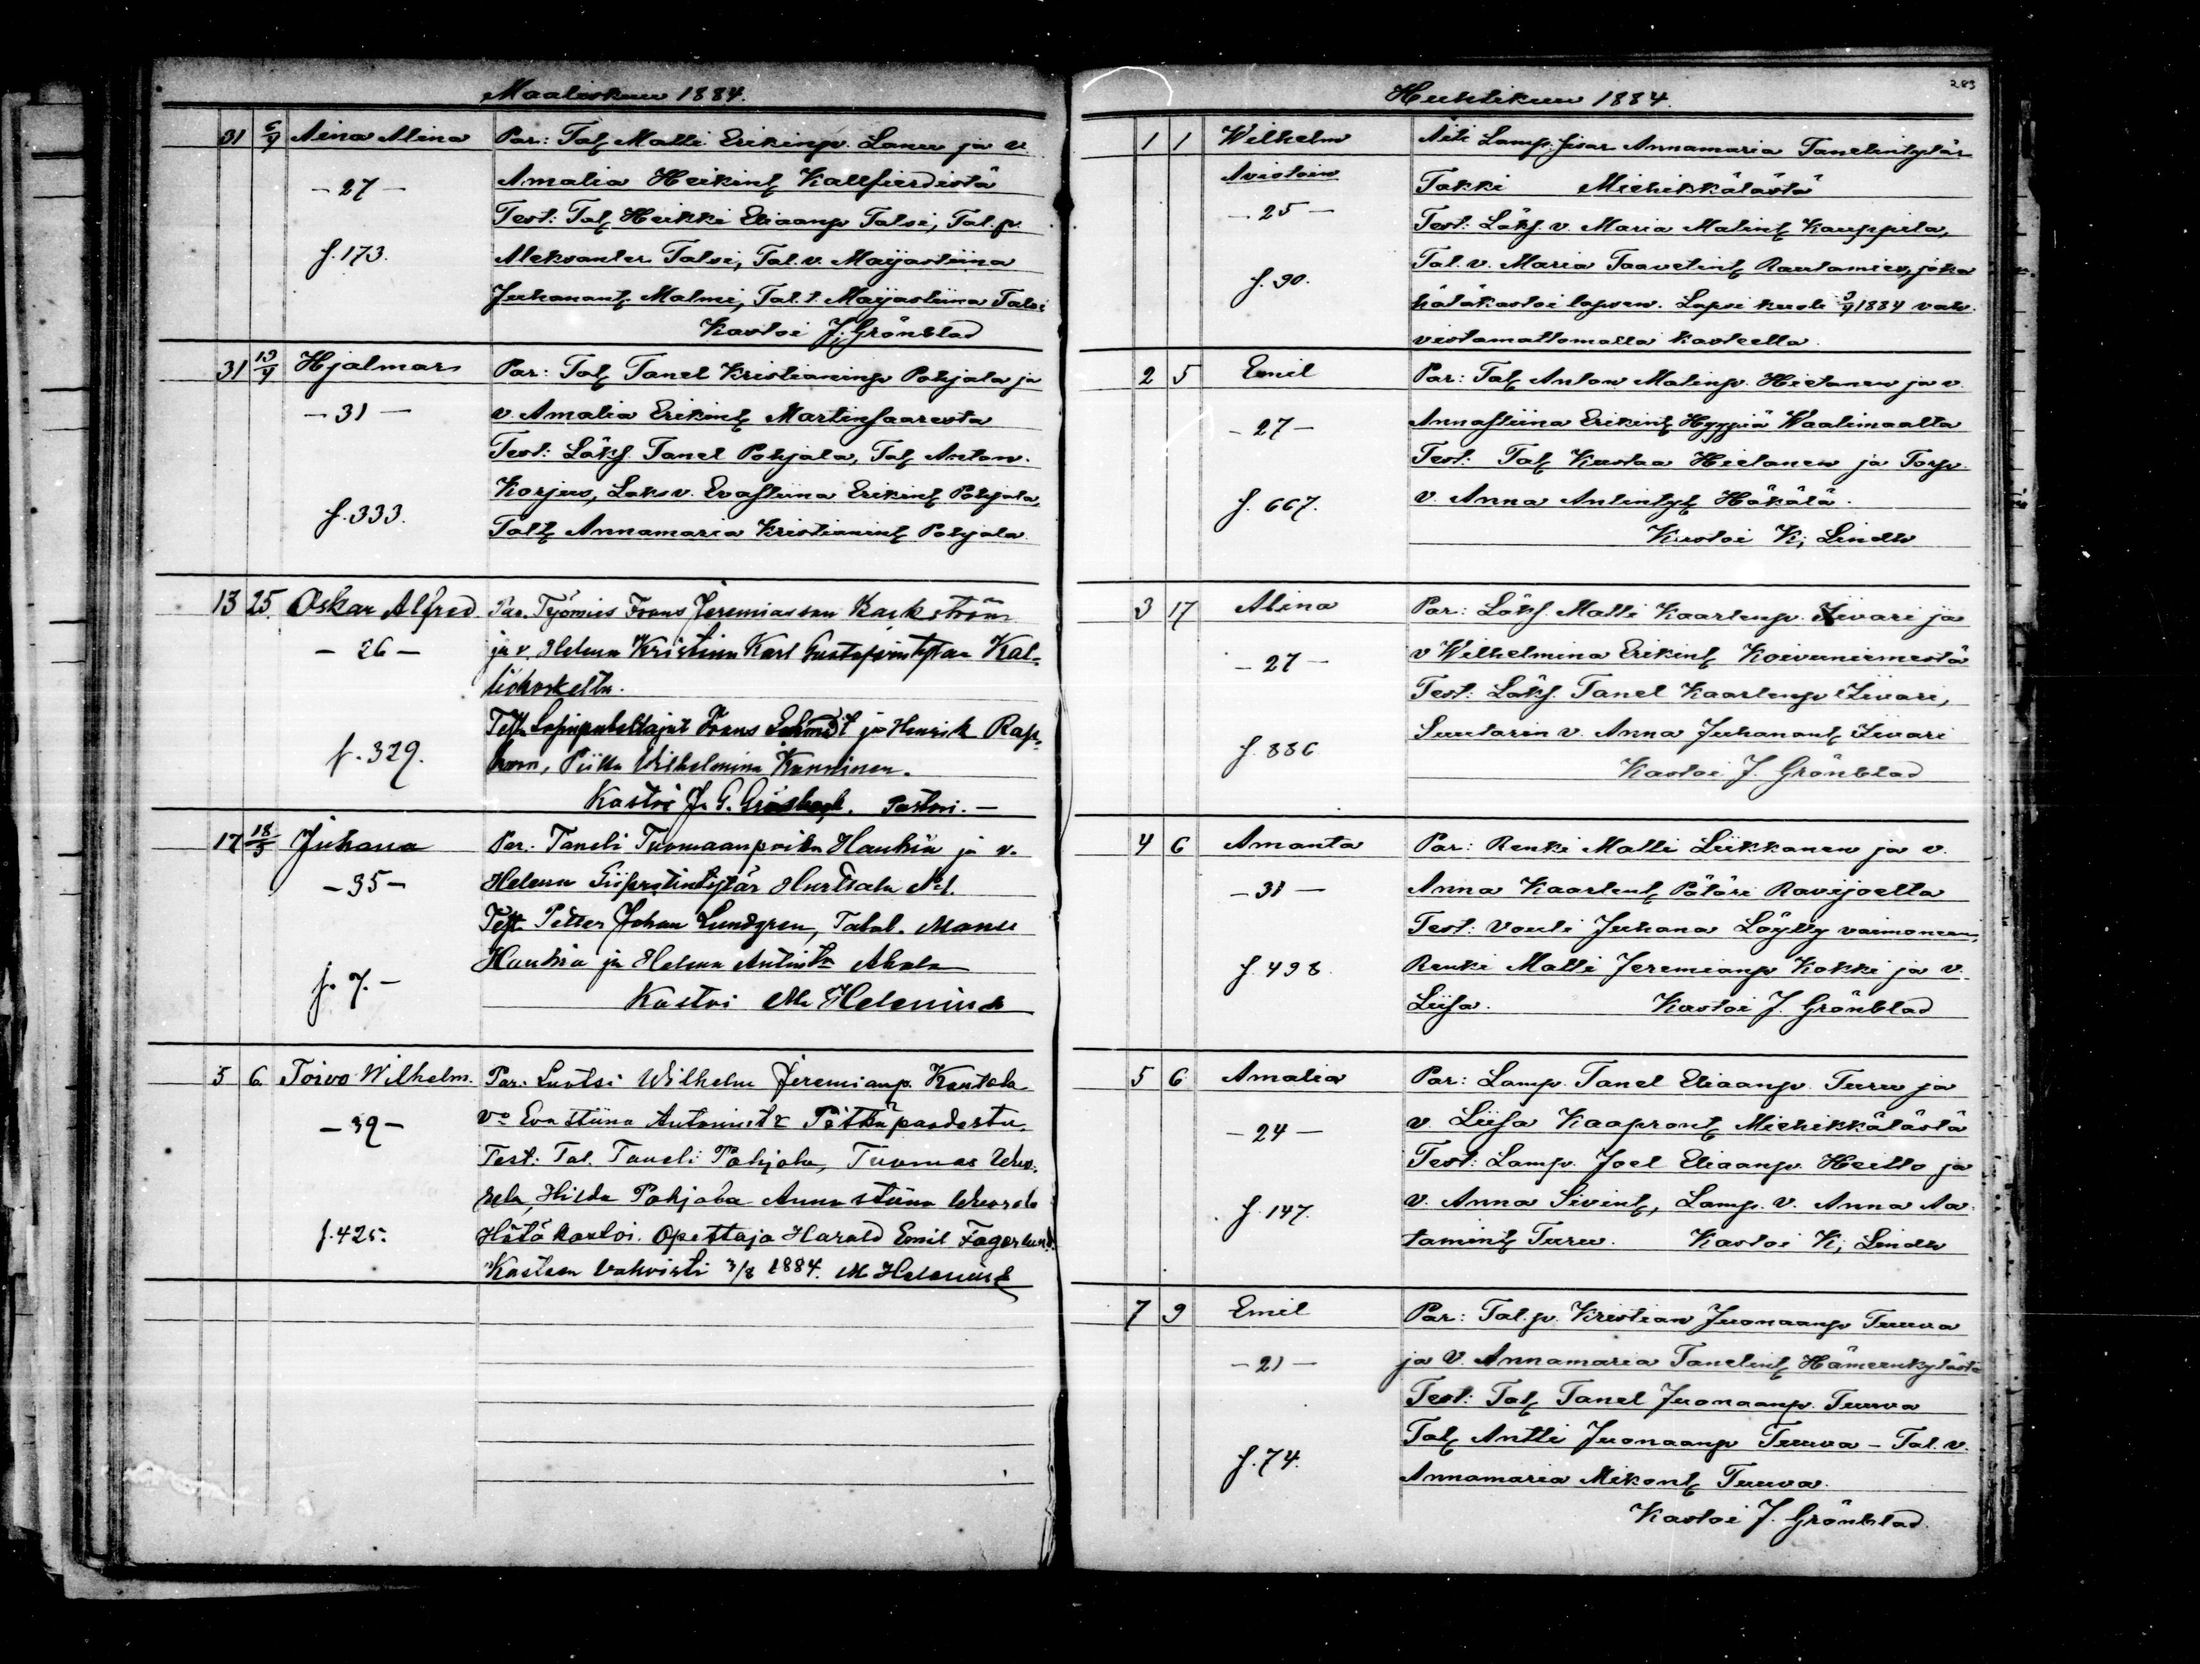 Maaliskuu 1884.
31 6/4 Aina Alina Par: Tal. Matti Erikinp. Lanu ja v.
- 27 - Amalia Heikint. Kallfierdistä
Test: Tal. Heikki Eliaanp Talsi, Tal. p.
f. 173. Aleksanter Talsi, Tal. v. Maijastiina
Juhanant. Malmi, Tal. t. Maijastiina Talsi
Kastoi J. Grönblad
31 13/4 Hjalmar Par: Tal. Tanel Kristianinp Pohjala ja
- 31 - v. Amalia Erikint. Martinsaaresta
Test: Läksl. Tanel Pohjala, Tal. Anton.
Korjus, Läks v. Evastiina Erikint. Pohjala,
f. 333. Talt. Annamaria Kristianint. Pohjala
13 25. Oskar Alfred. Par. Työmies Frans Jeremiasson Backström
- 26 - ja v. Helena Kristiina Karl Gustafvintytär Kal-
liokoskelta.
Test. Frans ja Henrik Rap-
f. 329. Piika Wilhelmina
Kastoi J. G. Pastori. -
17 18/5 Juhana Par. Taneli Tuomaanpoika Hauhia ja v.
- 35 - Helena
Test. Petter Johan Lundgren, Talol. Manu
Hauhia ja Helena Antint.
f. 7. - Kastoi M. Helenius
5 6. Toivo Wilhelm. Par. Luotsi Wilhelm Jeremianp.
- 39 - v. Eva Stiina Pitkäpaadesta.
Test: Tal. Taneli Pohjola, Tuomas
Hilda Pohjola Anna stiina
f. 425. Hätäkastoi. Opettaja Harald Emil Fagerlund.
Kasteen vahvisti 3/8 1884. M Helenius
283
Huhtikuu 1884.
1 1 Wilhelm Äiti Lamp. sisar Annamaria Tanelintytär
Aviotoin Takki Miehikkälästä
- 25 - Test: Läksl. v. Maria Matint. Kauppila,
Tal. v. Maria Taavetint. Rautamies, joka
f. 90. hätäkastoi lapsen. Lapsi kuoli 3/4 1884 vah-
vistamattomalla kasteella.
2 5 Emil Par: Tal. Anton Matinp. Hietanen ja v.
- 27 - Annastiina Erikint. Hyypiä Waalimaalta
Test: Tal. Kustaa Hietanen ja Torp.
f. 667. v. Anna Antintyt. Häkälä.
Kastoi K; Lindh
3 17 Alina Par: Läksl. Matti Kaarlenp. Iivari ja
- 27 - v Wilhelmina Erikint. Koivuniemestä
Test: Läksl. Tanel Kaarlenp Iivari,
f. 886 Suutarin v. Anna Juhanant. Iivari
Kastoi J. Grönblad
4 6 Amanta Par: Renki Matti Liikkanen ja v.
- 31 - Anna Kaarlent. Pätäri Ravijoelta
Test: Vouti Juhana Löylly vaimoneen,
f. 498. Renki Matti Jeremianp Kokki ja v.
Liisa. Kastoi J. Grönblad
5 6 Amalia Par: Lamp. Tanel Eliaanp. Turu ja
- 24 - v. Liisa Kaapront. Miehikkälästä
Test: Lamp. Joel Eliaanp. Heitto ja
f. 147. v. Anna Sivint., Lamp. v. Anna Aa-
tamint. Turu. Kastoi K; Lindh
7 9 Emil Par: Tal. p. Kristian Juonaanp Tuuva
- 21 - ja v. Annamaria Tanelint. Hämeenkylästä
Test: Tal. Tanel Juonaanp. Tuuva
Tal. Antti Juonaanp Tuuva - Tal. v.
f. 74. Annamaria Mikont. Tuuva.
Kastoi J. Grönblad.